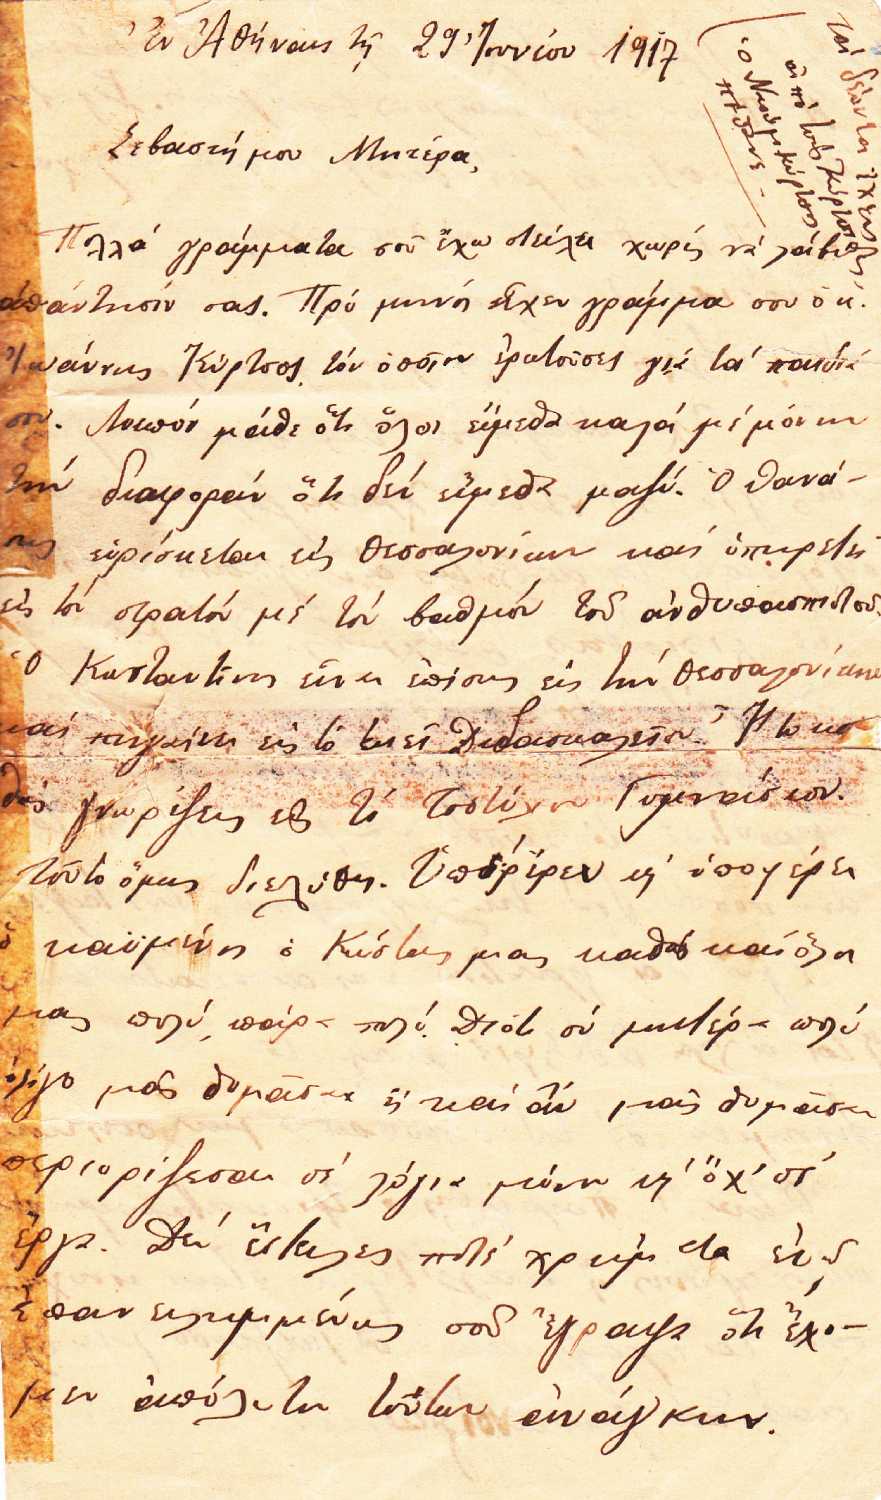 Ἐν Ἀθήναις τῇ 29 Ἰουνίου 1917
Σεβαστή μου Μητέρα,
Πολλά γράμματα σοῦ ἔχω στείλει χωρίς νά λάβω
ἀπάντησίν σας. Πρό μηνός εἶχεν γράμμα σου ὁ κ.
Ἰωάννης Κύρτσος, τόν ὁποῖον ἐρωτοῦσες γιά τά παιδιά
σου. Λοιπόν μάθε ὅτι ὅλοι εἴμεθα καλά μέ μόνην
τήν διαφοράν ὅτι δέν εἴμεθα μαζύ. Ὁ Θανά-
σης εὑρίσκεται εἰς Θεσσαλονίκην καί ὑπηρετεῖ
εἰς τόν στρατόν μέ τόν βαθμόν τοῦ ἀνθυπασπιστοῦ.
Ὁ Κωσταντῖνος εἶναι ἐπίσης εἰς τήν Θεσσαλονίκην
καί πηγαίνει εἰς τό ἐκεῖ Διδασκαλεῖον. Ἦτο κα
θώς γνωρίζεις εἰς τό Τσοτύλιον Γυμνάσιον.
Τοῦτο ὅμως διελύθη. Ὑπόφερεν κ' ὑποφέρει
ὁ καϋμένος ὁ Κώστας μας καθώς καί ὅλοι
μας πολύ, πάρα πολύ. Διότι σύ μητέρα πολύ
ὀλίγο μᾶς θυμᾶσαι κι' καί ἄν μᾶς θυμᾶσαι
περιορίζεσαι σέ λόγια μόνον κι' ὄχι σέ
ἔργα. Δέν ἔστειλες ποτέ χρήματα ἐνῷ
ἐπανειλημμένως σοῦ ἔγραψα ὅτι ἔχο-
μεν ἀπόλυτον τούτων ἀνάγκην.
Τά δέοντα
ἀπό τούς Κύρτσο
ὁ Κύρτσος
πέθανε